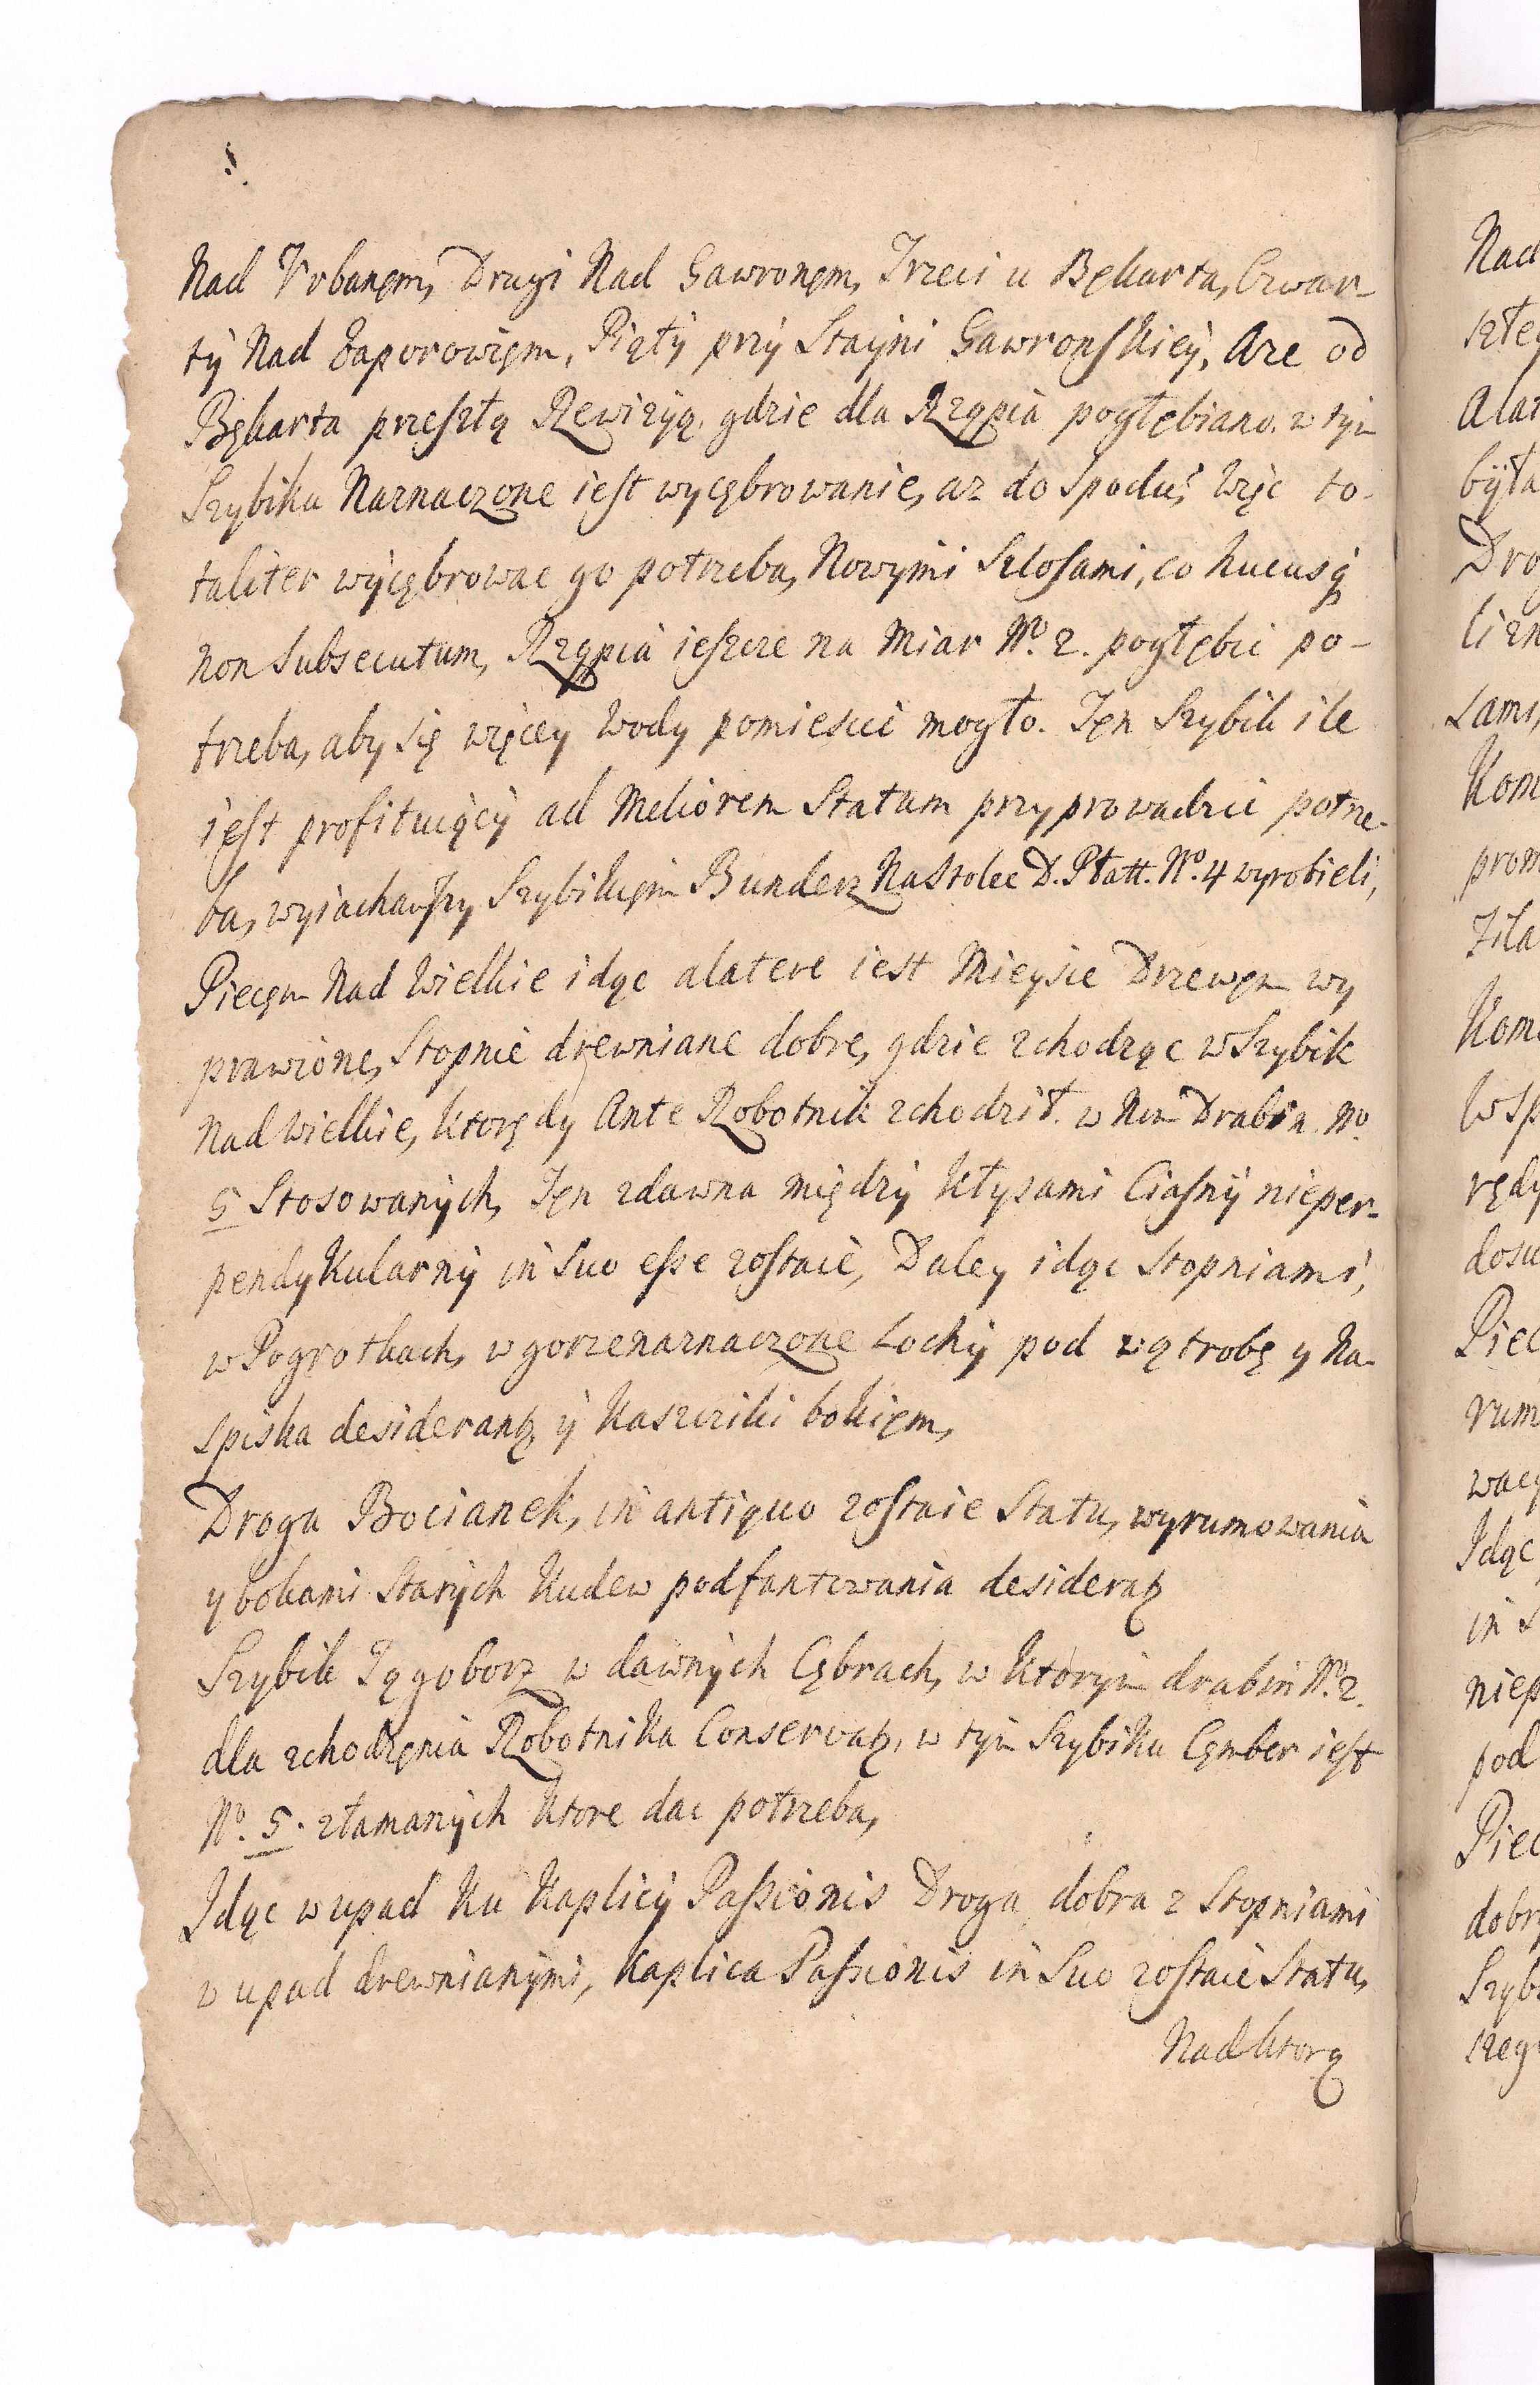 Nad Vrbanęm, Drugi Nad Gawronęm, Trzeci u Bękarta, Czwar-
tÿ Nad Zaporowięm, Piątÿ przÿ Stayni Gawronskieÿ, Aże od
Bękarta przeszłą Rewizyą, gdzie dla Rząpia pogłębiano, w tÿm
Szybiku Naznaczone iest wycębrowanie, az do Spodu, Więc to-
taliter wÿcębrowac go potrzeba, Nowymi Szlosami, co hucusq
non Subsecutum, Rząpia ieszcze na Miar No. 2. pogłębic po-
trzeba, aby się więcey Wody pomiescic mogło. Tęn Szybik ile
iest profituiącÿ ad Meliorem Statum przyprowadzic potrze-
ba, wyiachawszy Szybikięm Bunderz Nastolec D. Płatt. No. 4 wyrobieli,
Piecęm Nad Wielkie idąc alatere iest Mieysce Drzewęm wy
prawione, Stopnie drewniane dobre, gdzie zchodząc w Szybik
Nad Wielkie, ktorędy Ante Robotnik zchodził w Nim Drabin No.
5 Stosowanÿch, Tęn zdawna międzÿ kłysami Ciasnÿ nieper-
pendykularnÿ in Suo esse zostaie, Daley idąc Stopniami,
w Pogrotkach, w gorze naznaczone Lochÿ pod wątrobę y Na-
spiska desiderantz ÿ kaszciki bokięm,
Droga Bocianek, in antiquo zostaie Statu, wyrumowania
y bokami Starÿch kudew podfantowania desideratz
Szybik Zągoborz w dawnÿch Cębrach, w ktorÿm drabin No. 2.
dla zchodzęnia Robotnika Conservatz, w tÿm Szybiku Cęmber iest
No. 5. złamanÿch ktore dac potrzeba,
Idąc w upad ku kaplicÿ Passionis Droga dobra z Stopniami
w upad drewnianÿmi, kaplica Passionis in Suo zostaie Statu,
Nad ktorą
Nad